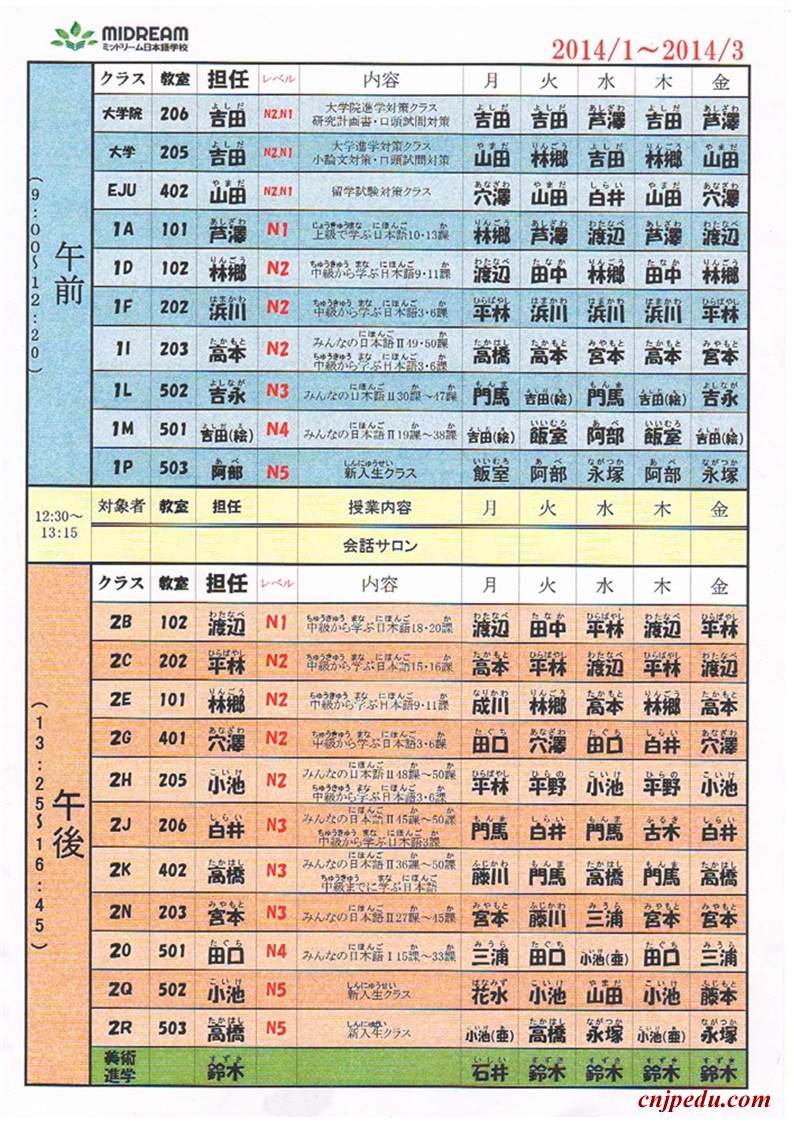 MIDREAM
ミッドリーム日本語学校
2014/1～2014/3
クラス 教室 担任 レベル 内容 月 火 水 木 金
(9:00~12:20)
午前
大学院 206 吉田 N2.N1 大学院進学対策クラス 研究計画書・口頭試問対策 吉田 吉田 芦澤 吉田 芦澤
大学 205 吉田 N2.N1 大学進学対策クラス 小論文対策・口頭試問対策 山田 林郷 吉田 林郷 山田
EJU 402 山田 N2.N1 留学試験対策クラス 穴澤 山田 白井 山田 穴澤
1A 101 芦澤 N1 上級で学ぶ日本語10・13課 林郷 芦澤 渡辺 芦澤 渡辺
1D 102 林郷 N2 中級から学ぶ日本語9・11課 渡辺 田中 林郷 田中 林郷
1F 202 浜川 N2 中級から学ぶ日本語3・6課 平林 浜川 浜川 浜川 平林
1I 203 高本 N2 みんなの日本語Ⅱ49・50課 中級から学ぶ日本語3・6課 高橋 高本 宮本 高本 宮本
1L 502 吉永 N3 みんなの日本語Ⅱ30課～47課 門馬 吉田(絵) 門馬 吉田(絵) 吉永
1M 501 吉田(絵) N4 みんなの日本語Ⅱ19課～38課 吉田(絵) 飯室 阿部 飯室 吉田(絵)
1P 503 阿部 N5 新入生クラス 飯室 阿部 永塚 阿部 永塚
12:30～13:15
対象者 教室 担任 授業内容 月 火 水 木 金
会話サロン
クラス 教室 担任 レベル 内容 月 火 水 木 金
(13:25~16:45)
午後
2B 102 渡辺 N1 中級から学ぶ日本語18・20課 渡辺 田中 平林 渡辺 平林
2C 202 平林 N2 中級から学ぶ日本語15・16課 高本 平林 渡辺 平林 渡辺
2E 101 林郷 N2 中級から学ぶ日本語9・11課 成川 林郷 高本 林郷 高本
2G 401 穴澤 N2 中級から学ぶ日本語3・6課 田口 穴澤 田口 白井 穴澤
2H 205 小池 N2 みんなの日本語Ⅱ48課～50課 中級から学ぶ日本語3・6課 平林 平野 小池 平野 小池
2J 206 白井 N3 みんなの日本語Ⅱ45課～50課 中級から学ぶ日本語3課 門馬 白井 門馬 古木 白井
2K 402 高橋 N3 みんなの日本語Ⅱ36課～50課 中級までに学ぶ日本語 藤川 門馬 高橋 門馬 高橋
2N 203 宮本 N3 みんなの日本語Ⅱ27課～45課 宮本 藤川 三浦 宮本 宮本
2O 501 田口 N4 みんなの日本語Ⅰ15課～33課 三浦 田口 小池(亜) 田口 三浦
2Q 502 小池 N5 新入生クラス 花水 小池 山田 小池 藤本
2R 503 高橋 N5 新入生クラス 小池(亜) 高橋 永塚 小池(亜) 永塚
美術進学 鈴木 石井 鈴木 鈴木 鈴木 鈴木
cnjpedu.com